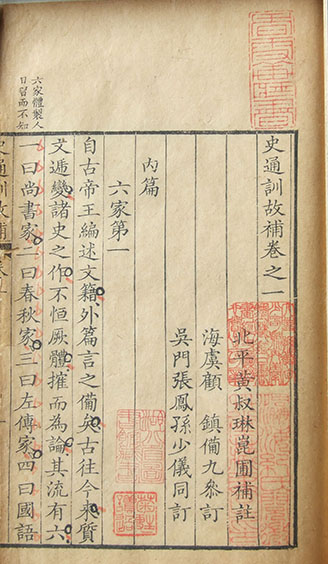 史通訓故補卷之一
北平黃叔琳崑圃補註
海虞顧 鎮備九參訂
吳門張鳳孫少儀同訂
內篇
六家第一
自古帝王編述文籍外篇言之備矣古往今來質
文遞變諸史之作不恒厥體搉而為論其流有六
一曰尚書家二曰春秋家三曰左傳家四曰國語
六家體製人
日習而不知
史通訓故補